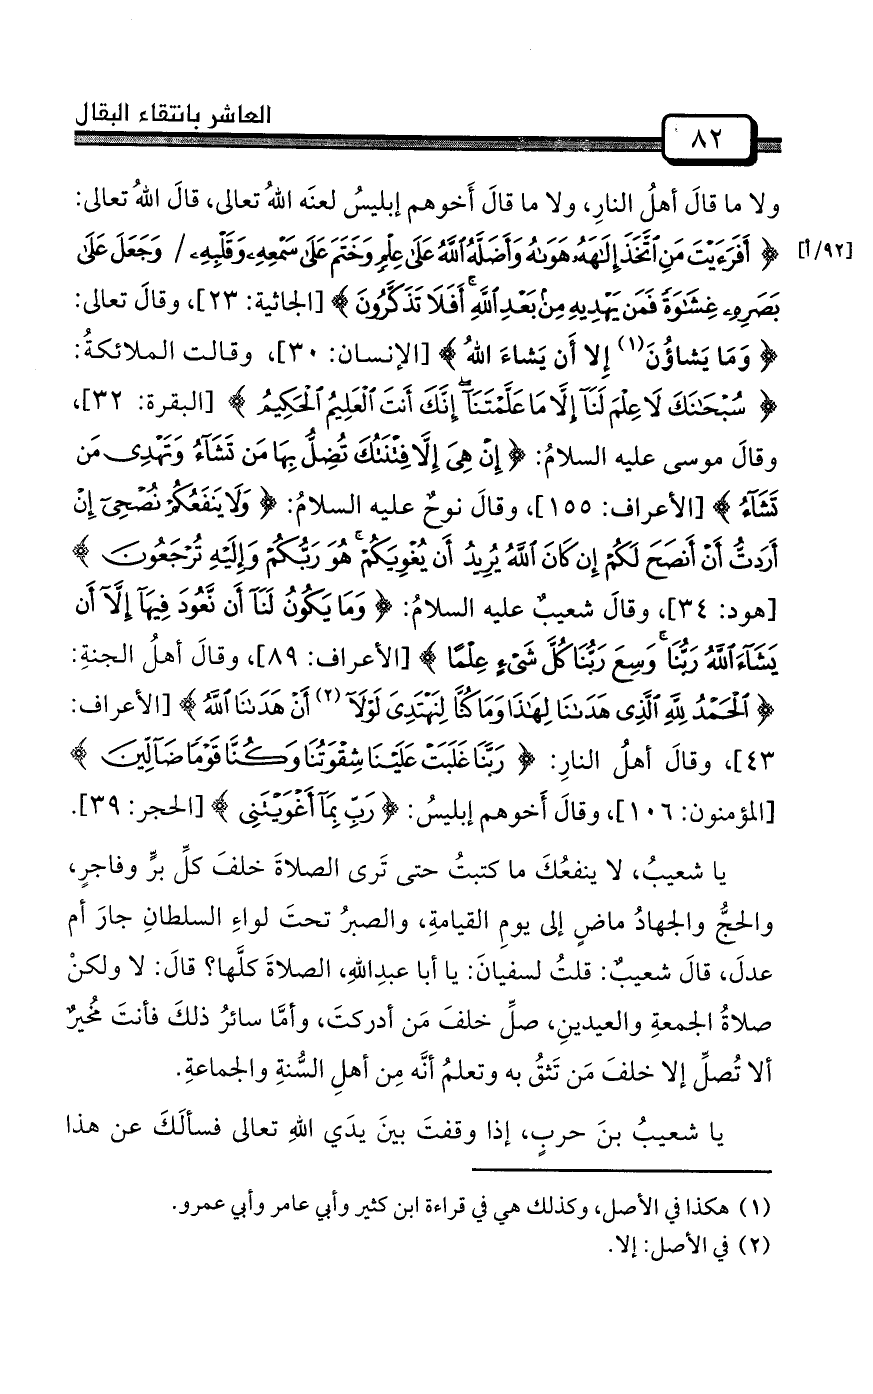 العاشر بانتقاء البقال
٨٢
ولا ما قالَ أهلُ النارِ، ولا ما قالَ أَخوهم إبليسُ لعنَه اللهُ تعالى، قالَ اللهُ تعالى:
[٩٢/أ] ﴿ أَفَرَءَيْتَ مَنِ ٱتَّخَذَ إِلَـٰهَهُۥ هَوَىٰهُ وَأَضَلَّهُ ٱللَّهُ عَلَىٰ عِلْمٍ وَخَتَمَ عَلَىٰ سَمْعِهِۦ وَقَلْبِهِۦ / وَجَعَلَ عَلَىٰ
بَصَرِهِۦ غِشَـٰوَةً فَمَن يَهْدِيهِ مِنۢ بَعْدِ ٱللَّهِ ۚ أَفَلَا تَذَكَّرُونَ ﴾ [الجاثية: ٢٣]، وقالَ تعالى:
﴿ وَمَا يَشاؤُنَ(١) إِلا أَن يَشاءَ اللهُ ﴾ [الإنسان: ٣٠]، وقالت الملائكةُ:
﴿ سُبْحَـٰنَكَ لَا عِلْمَ لَنَآ إِلَّا مَا عَلَّمْتَنَآ ۖ إِنَّكَ أَنتَ ٱلْعَلِيمُ ٱلْحَكِيمُ ﴾ [البقرة: ٣٢]،
وقالَ موسى عليه السلامُ: ﴿ إِنْ هِىَ إِلَّا فِتْنَتُكَ تُضِلُّ بِهَا مَن تَشَآءُ وَتَهْدِى مَن
تَشَآءُ ﴾ [الأعراف: ١٥٥]، وقالَ نوحٌ عليه السلامُ: ﴿ وَلَا يَنفَعُكُمْ نُصْحِىٓ إِنْ
أَرَدتُّ أَنْ أَنصَحَ لَكُمْ إِن كَانَ ٱللَّهُ يُرِيدُ أَن يُغْوِيَكُمْ ۚ هُوَ رَبُّكُمْ وَإِلَيْهِ تُرْجَعُونَ ﴾
[هود: ٣٤]، وقالَ شعيبٌ عليه السلامُ: ﴿ وَمَا يَكُونُ لَنَآ أَن نَّعُودَ فِيهَآ إِلَّآ أَن
يَشَآءَ ٱللَّهُ رَبُّنَا ۚ وَسِعَ رَبُّنَا كُلَّ شَىْءٍ عِلْمًا ﴾ [الأعراف: ٨٩]، وقالَ أهلُ الجنةِ:
﴿ ٱلْحَمْدُ لِلَّهِ ٱلَّذِى هَدَىٰنَا لِهَـٰذَا وَمَا كُنَّا لِنَهْتَدِىَ لَوْلَآ(٢) أَنْ هَدَىٰنَا ٱللَّهُ ﴾ [الأعراف:
٤٣]، وقالَ أهلُ النارِ: ﴿ رَبَّنَا غَلَبَتْ عَلَيْنَا شِقْوَتُنَا وَكُنَّا قَوْمًا ضَآلِّينَ ﴾
[المؤمنون: ١٠٦]، وقالَ أَخوهم إبليسُ: ﴿ رَبِّ بِمَآ أَغْوَيْتَنِى ﴾ [الحجر: ٣٩].
يا شعيبُ، لا ينفعُكَ ما كتبتُ حتى تَرى الصلاةَ خلفَ كلِّ برٍّ وفاجرٍ،
والحجُّ والجهادُ ماضٍ إلى يومِ القيامةِ، والصبرُ تحتَ لواءِ السلطانِ جارَ أم
عدلَ، قالَ شعيبٌ: قلتُ لسفيانَ: يا أبا عبدِاللهِ، الصلاةَ كلَّها؟ قالَ: لا ولكنْ
صلاةُ الجمعةِ والعيدينِ، صلِّ خلفَ مَن أدركتَ، وأمَّا سائرُ ذلكَ فأنتَ مُخيرٌ
ألا تُصلِّ إلا خلفَ مَن تَثقُ به وتعلمُ أنَّه مِن أهلِ السُّنةِ والجماعةِ.
يا شعيبُ بنَ حربٍ، إذا وقفتَ بينَ يدَي اللهِ تعالى فسألَكَ عن هذا
(١) هكذا في الأصل، وكذلك هي في قراءة ابن كثير وأبي عامر وأبي عمرو.
(٢) في الأصل: إلا.